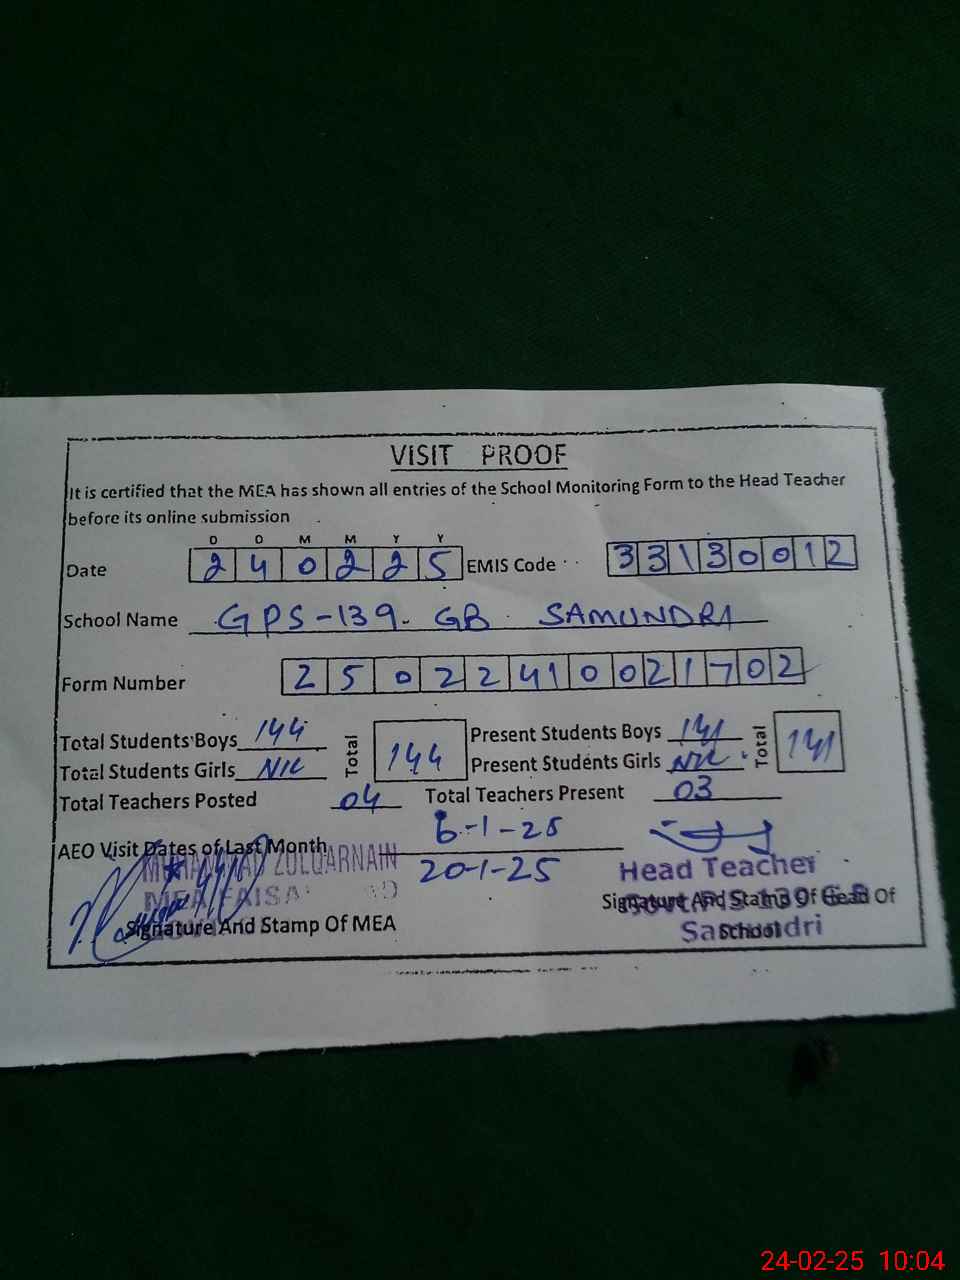 VISIT PROOF
It is certified that the MEA has shown all entries of the School Monitoring Form to the Head Teacher
before its online submission
D D M M Y Y
Date 240225 EMIS Code 33130012
School Name GPS-139. GB SAMUNDRI
Form Number 25022410021702
Total Students Boys 144 Total 144 Present Students Boys 141 Total 141
Total Students Girls NIL Present Students Girls NIL
Total Teachers Posted 04 Total Teachers Present 03
AEO Visit Dates of Last Month 6-1-25
20-1-25
MUHAMMAD ZULQARNAIN
MEA FAISA
Signature And Stamp Of MEA
Head Teacher
Signature And Stamp Of Head Of
School
Samundri
24-02-25 10:04